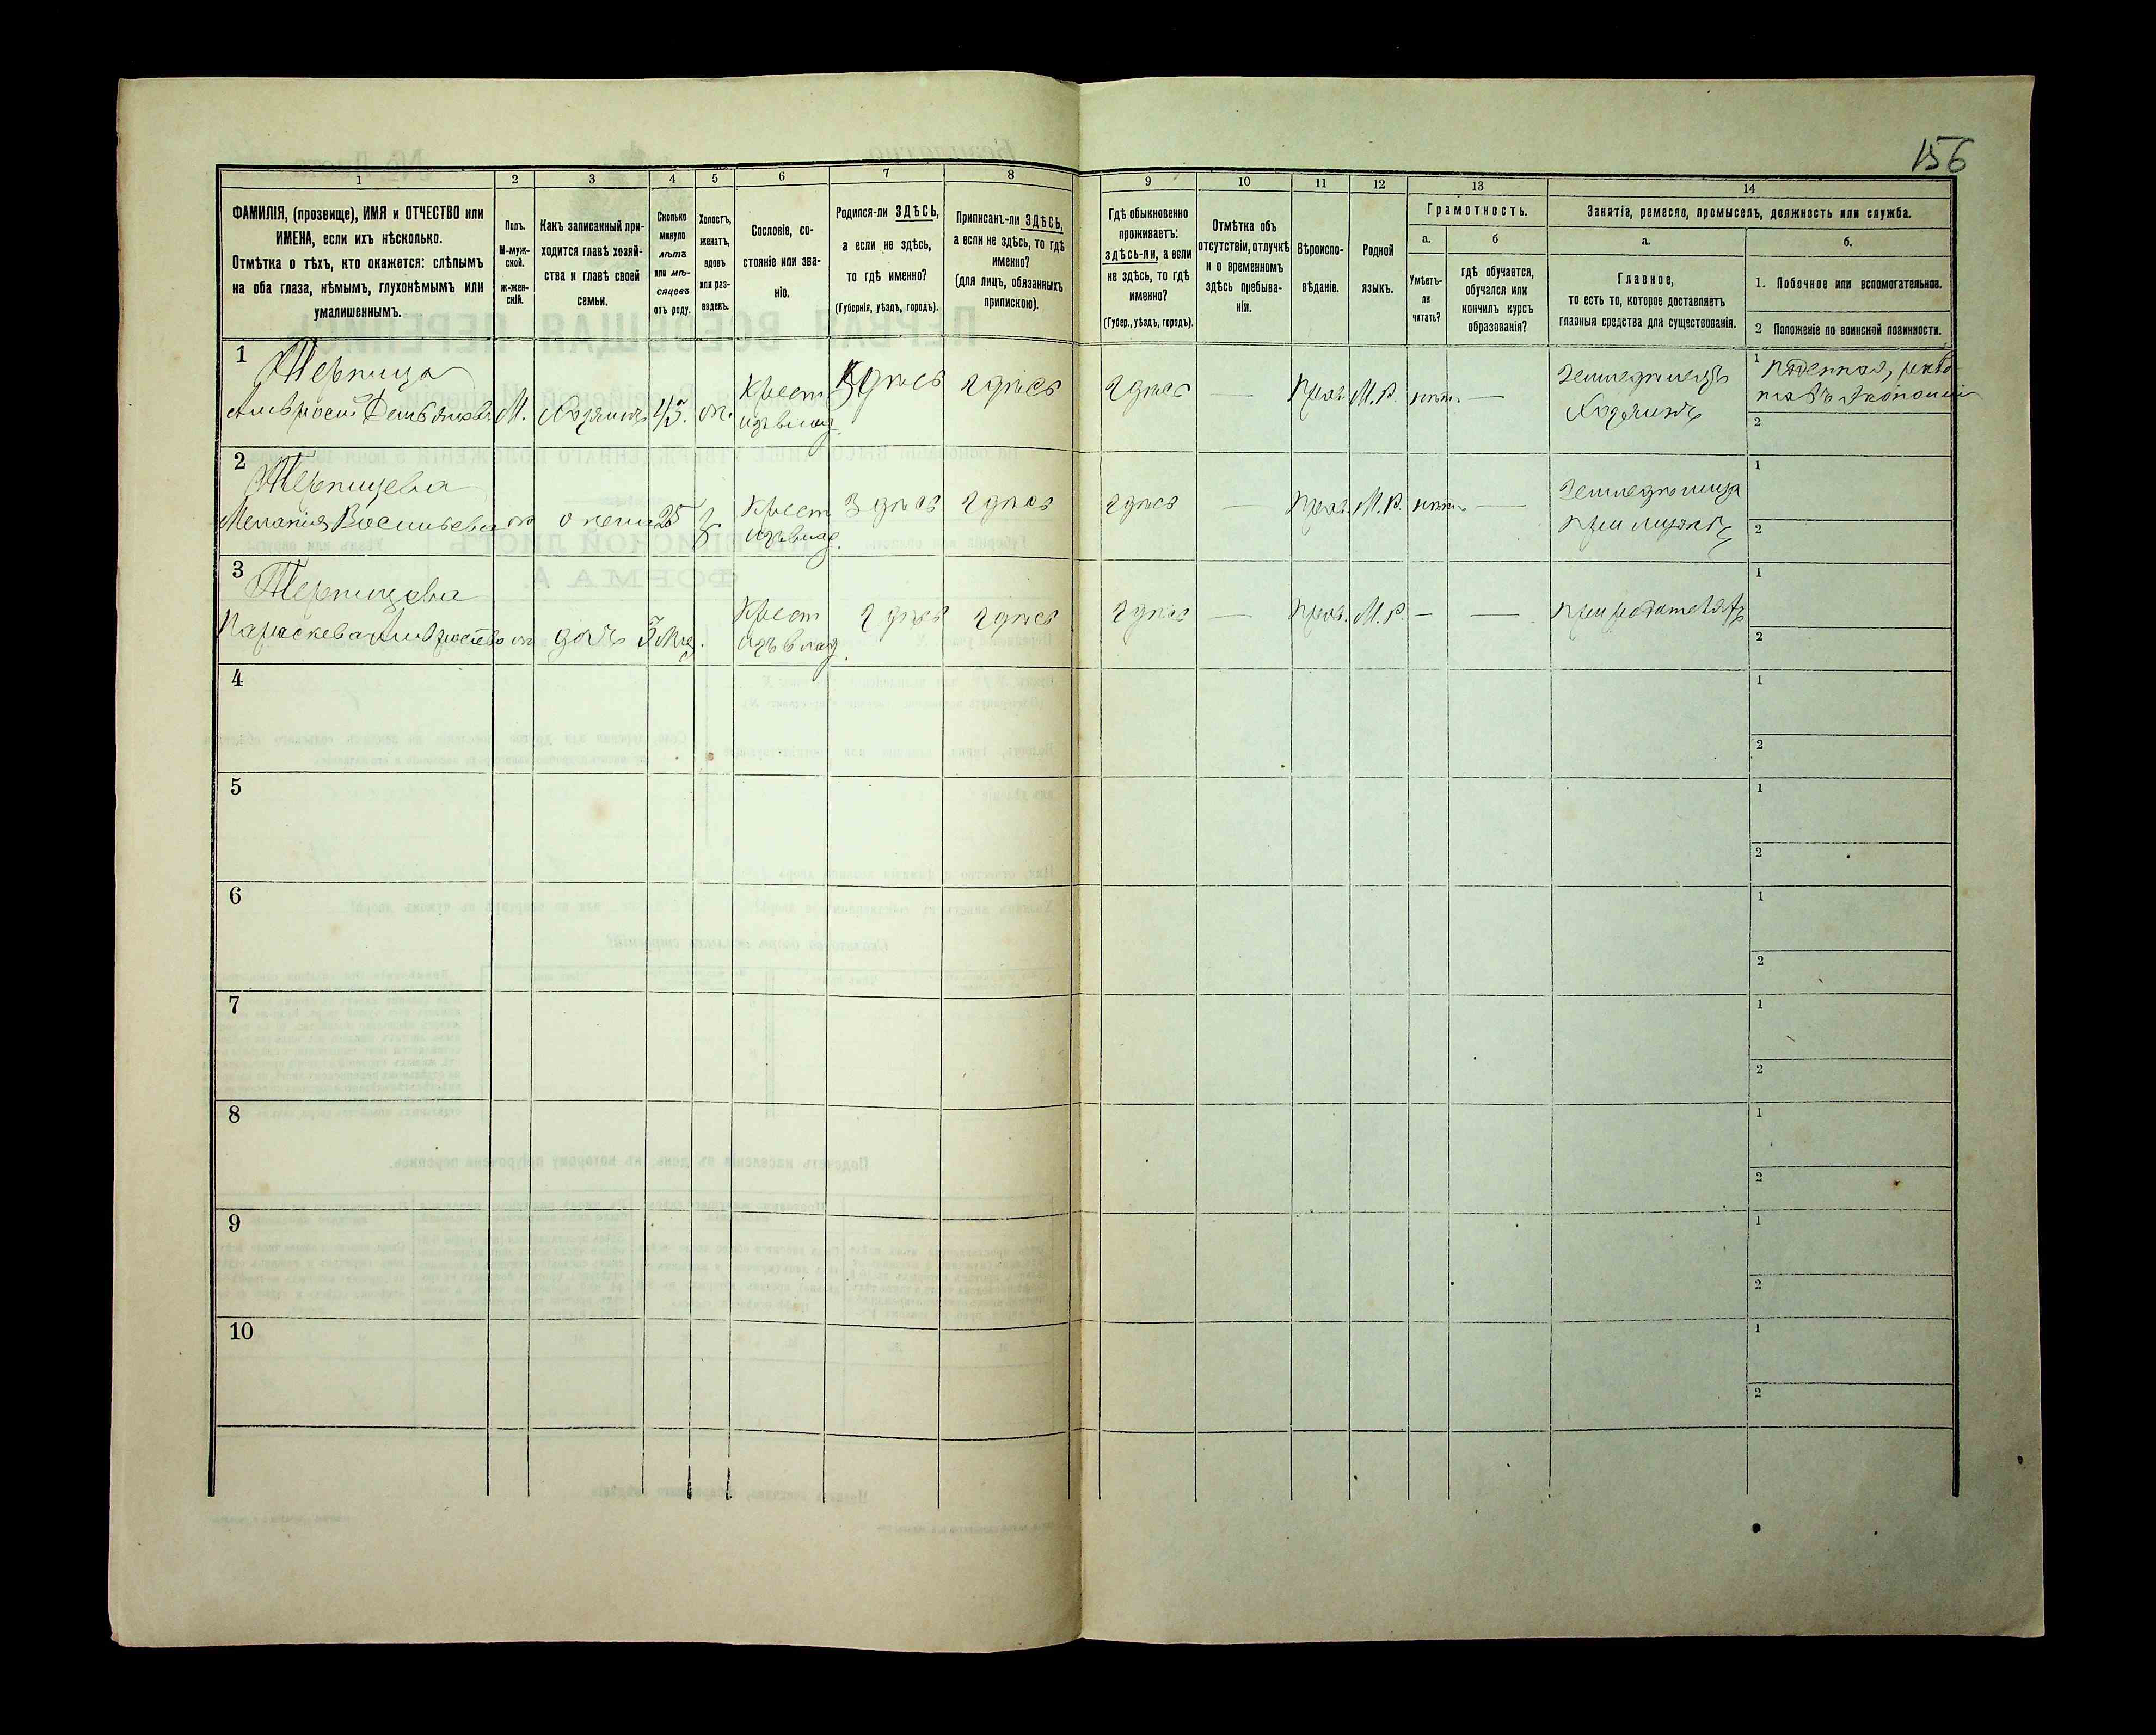 156
1 2 3 4 5 6 7 8 9 10 11 12 13 14
ФАМИЛІЯ, (прозвище), ИМЯ и ОТЧЕСТВО или
ИМЕНА, если ихъ нѣсколько.
Отмѣтка о тѣхъ, кто окажется: слѣпымъ
на оба глаза, нѣмымъ, глухонѣмымъ или
умалишеннымъ.
Полъ.
М-муж-
ской.
ж-жен-
скій.
Какъ записанный при-
ходится главѣ хозяй-
ства и главѣ своей
семьи.
Сколько
минуло
лѣтъ
или мѣ-
сяцевъ
отъ роду.
Холостъ,
женатъ,
вдовъ
или раз-
веденъ.
Сословіе, со-
стояніе или зва-
ніе.
Родился-ли ЗДѢСЬ,
а если не здѣсь,
то гдѣ именно?
(Губернія, уѣздъ, городъ).
Приписанъ-ли ЗДѢСЬ,
а если не здѣсь, то гдѣ
именно?
(для лицъ, обязанныхъ
припискою).
Гдѣ обыкновенно
проживаетъ:
здѣсь-ли, а если
не здѣсь, то гдѣ
именно?
(Губер., уѣздъ, городъ).
Отмѣтка объ
отсутствіи, отлучкѣ
и о временномъ
здѣсь пребыва-
ніи.
Вѣроиспо-
вѣданіе.
Родной
языкъ.
Грамотность.
а.
Умѣетъ-
ли
читать?
б
гдѣ обучается,
обучался или
кончилъ курсъ
образованія?
Занятіе, ремесло, промыселъ, должность или служба.
а.
Главное,
то есть то, которое доставляетъ
главныя средства для существованія.
б.
1. Побочное или вспомогательное.
2 Положеніе по воинской повинности.
1
Терпица
М. Хозяинъ 45. ж. Крест. здѣсь здѣсь здѣсь — Прав. М.Р. нѣтъ — Земледѣлецъ 1
изъ влад. Хозяинъ
2
2
Терпицева
Меланія Васильева ж жена 25 Крест здѣсь здѣсь здѣсь — Прав. М.Р. нѣтъ — 1
изъ влад. при мужѣ 2
3
Терпицева
Параскева ж дочь 3 мѣс. Крест здѣсь здѣсь здѣсь — Прав. М.Р. — — 1
изъ влад. 2
4 1
2
5 1
2
6 1
2
7 1
2
8 1
2
9 1
2
10 1
2